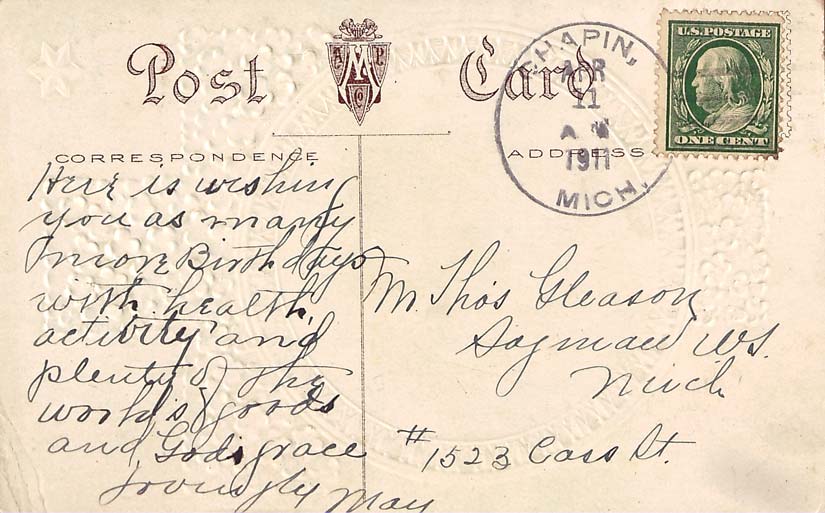 Post Card
A M P
CO
CHAPIN,
APR
11
A M
1911
MICH.
U.S. POSTAGE
ONE CENT
CORRESPONDENCE
ADDRESS
Here is wishing
you as many
more Birthdays
with health,
activity and
plenty of the
world's goods
and God's grace
lovingly May
Mr. Thos Gleason
Saginaw W.S.
Mich
#1523 Cass St.